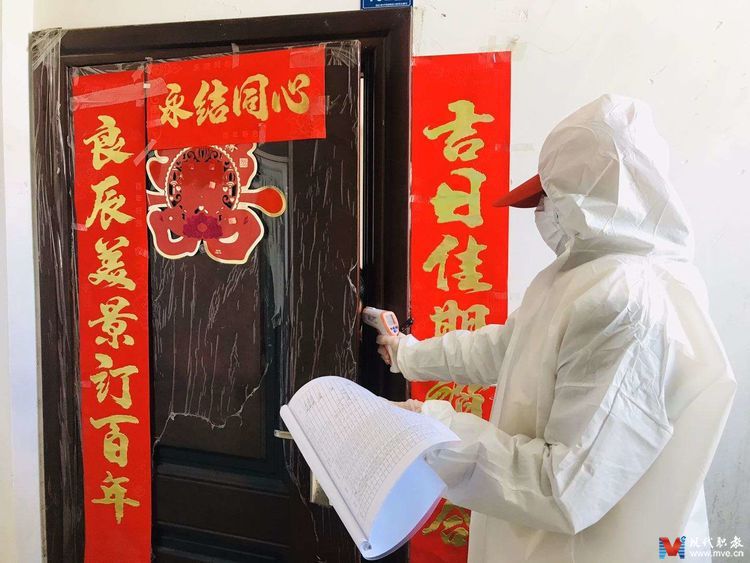 永结同心
吉日佳期
良辰美景订百年
现代职教
www.mve.cn